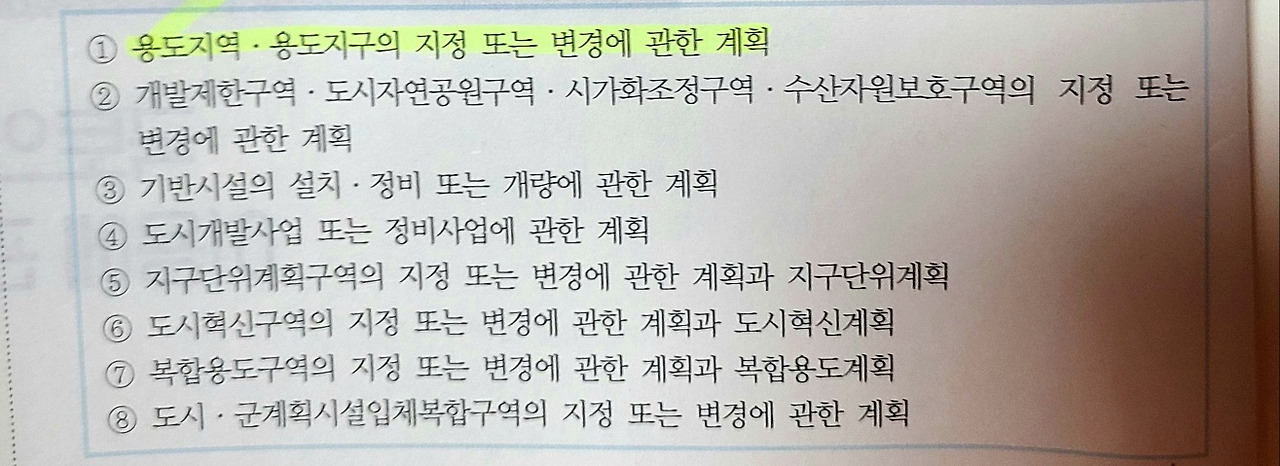 ① 용도지역·용도지구의 지정 또는 변경에 관한 계획
② 개발제한구역·도시자연공원구역·시가화조정구역·수산자원보호구역의 지정 또는
변경에 관한 계획
③ 기반시설의 설치·정비 또는 개량에 관한 계획
④ 도시개발사업 또는 정비사업에 관한 계획
⑤ 지구단위계획구역의 지정 또는 변경에 관한 계획과 지구단위계획
⑥ 도시혁신구역의 지정 또는 변경에 관한 계획과 도시혁신계획
⑦ 복합용도구역의 지정 또는 변경에 관한 계획과 복합용도계획
⑧ 도시·군계획시설입체복합구역의 지정 또는 변경에 관한 계획